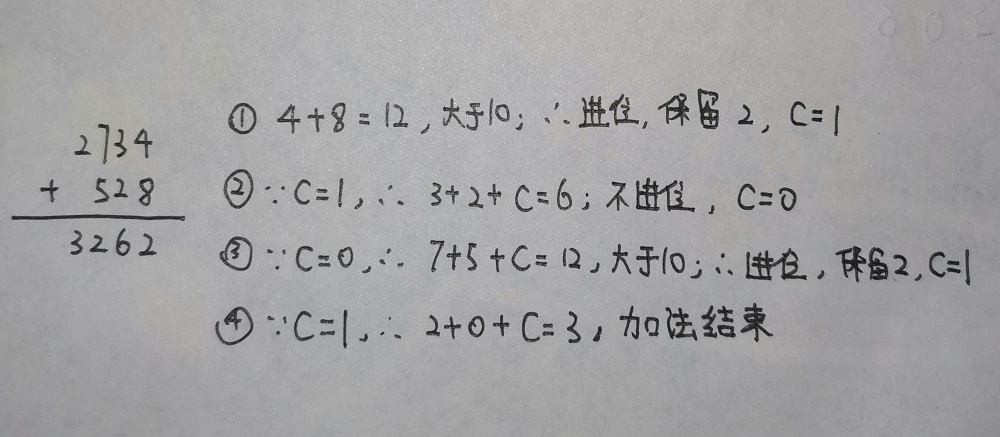 2734
+ 528
3262
① 4+8=12,大于10;∴进位,保留2,C=1
②∵C=1,∴ 3+2+C=6;不进位,C=0
③∵C=0,∴ 7+5+C=12,大于10;∴进位,保留2,C=1
④∵C=1,∴ 2+0+C=3,加法结束